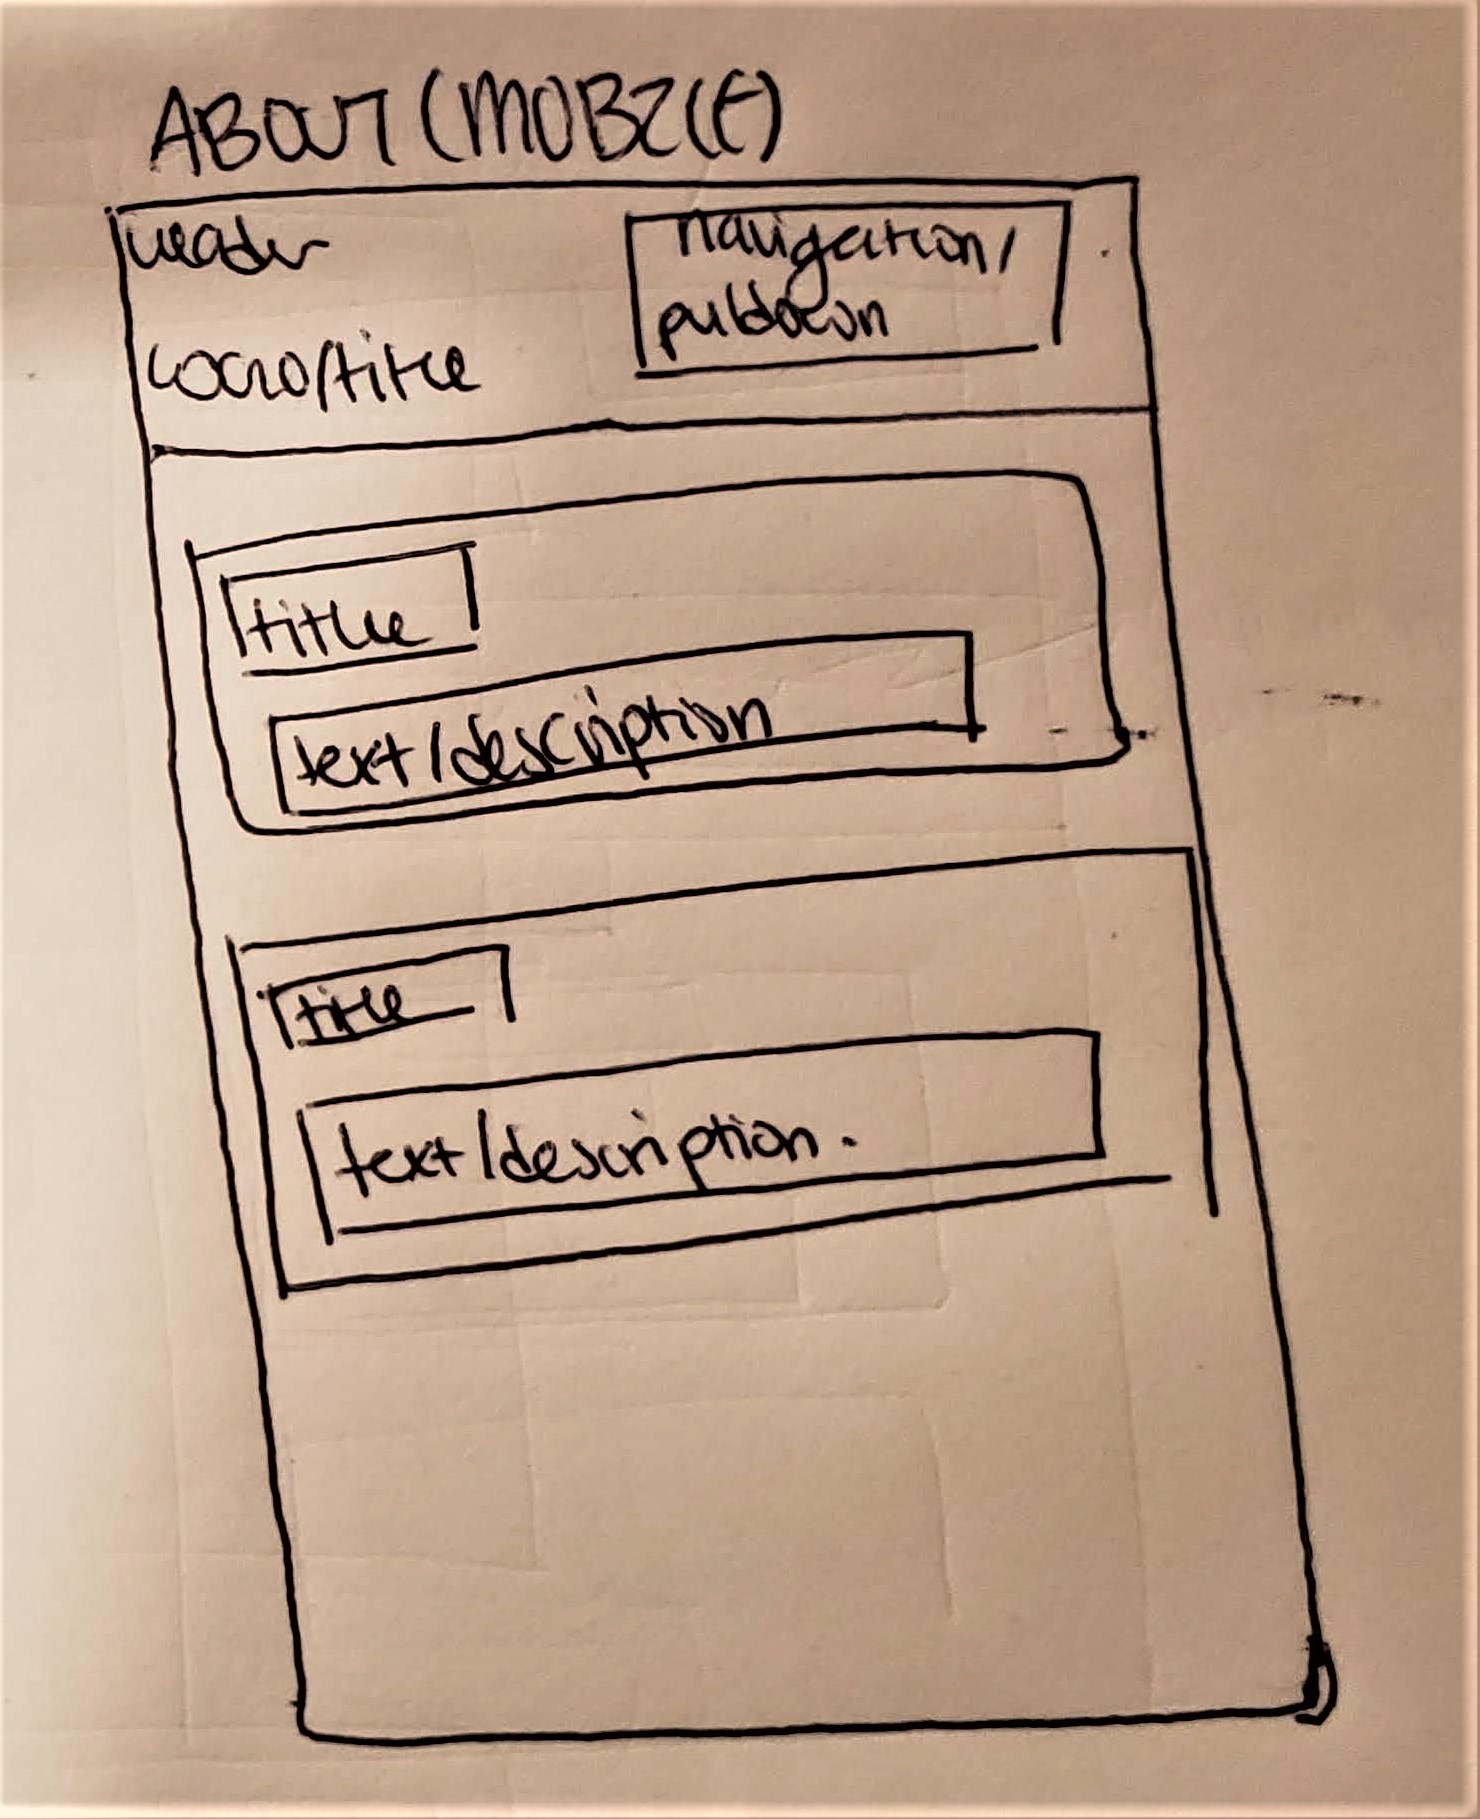 ABOUT (MOBILE)
header
navigation/
puldown
LOGO/title
title
text/description
title
text/description.